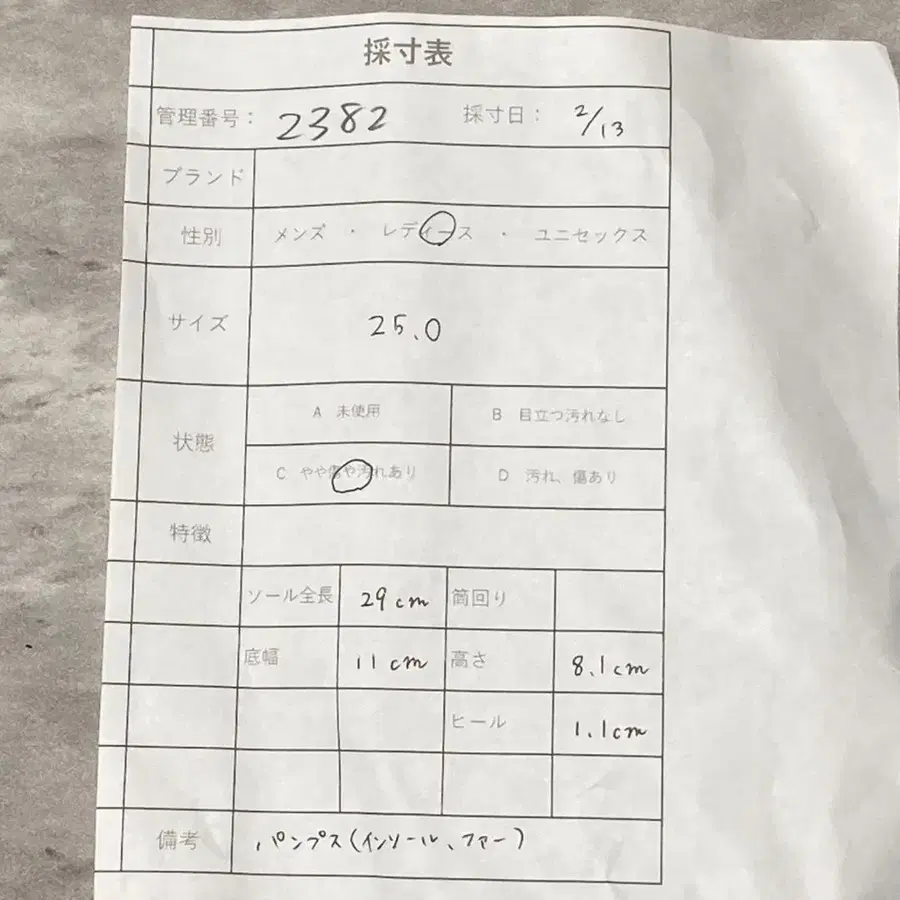 採寸表
管理番号： 2382 採寸日： 2/13
ブランド
性別 メンズ ・ レディース ・ ユニセックス
サイズ 25.0
状態 A 未使用 B 目立つ汚れなし
C やや傷や汚れあり D 汚れ、傷あり
特徴
ソール全長 29cm 筒回り
底幅 11cm 高さ 8.1cm
ヒール 1.1cm
備考 パンプス(インソール、ファー)